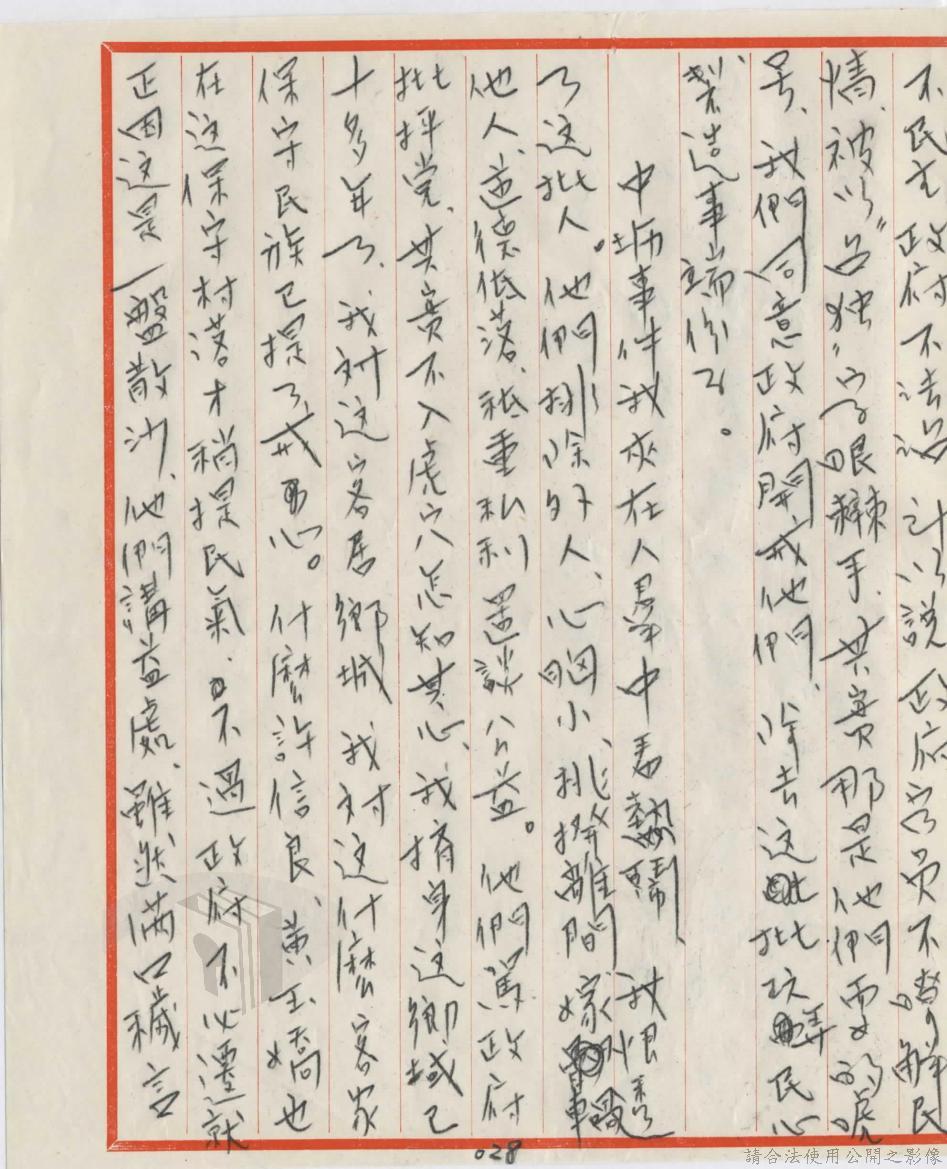 不民主政府不法 說政府官員不瞭解民
情、被以"台独"字眼辣手、其實那是他們耍的唬
号、我們同意政府開戒他們、除去这批玩弄民心
製造事端份子。
中坜事件我夾在人羣中看熱鬧、我恨透
了这批人。他們排除外人、心胸小、挑撥離間、嫁
他人、道德低落、祗重私利還談公益。他們罵政府
批抨党、其實不入虎穴怎知其心、我搞身这鄉城已
十多年了、我对这客居鄉城 我对这什麽客家
保守民族已提了戒心。什麽許信良、黄玉嬌也
在这保守村落才稍提民氣、不過政府不必遷就
正因这是一盤散沙、他們講益處、雖然满口穢言
028
請合法使用公開之影像